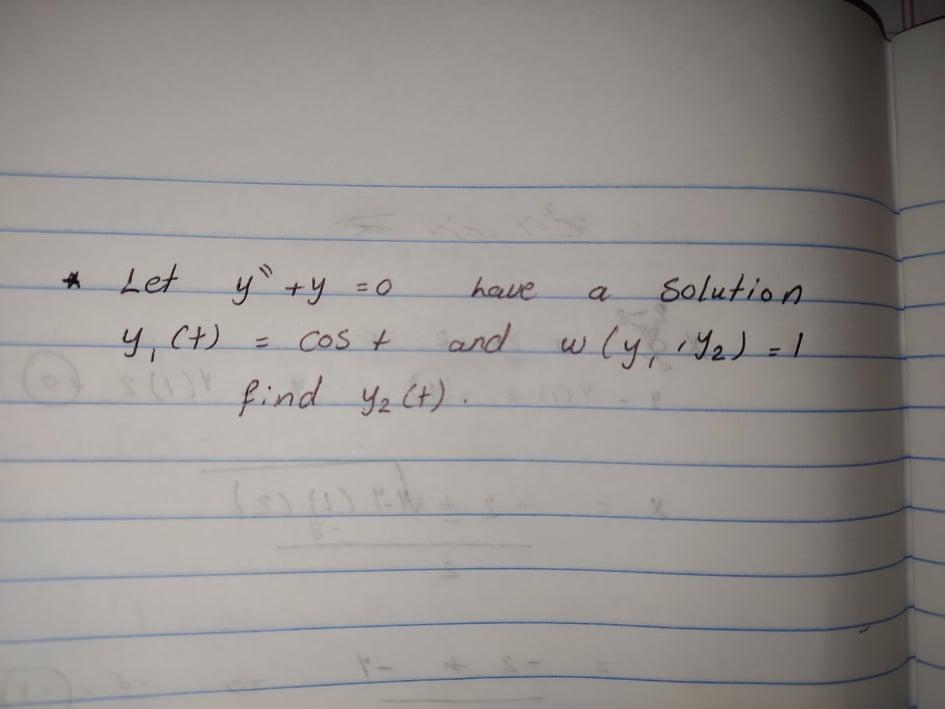 * Let y" + y = 0 have a solution
y₁(t) = cos t and w(y₁, y₂) = 1
find y₂(t).